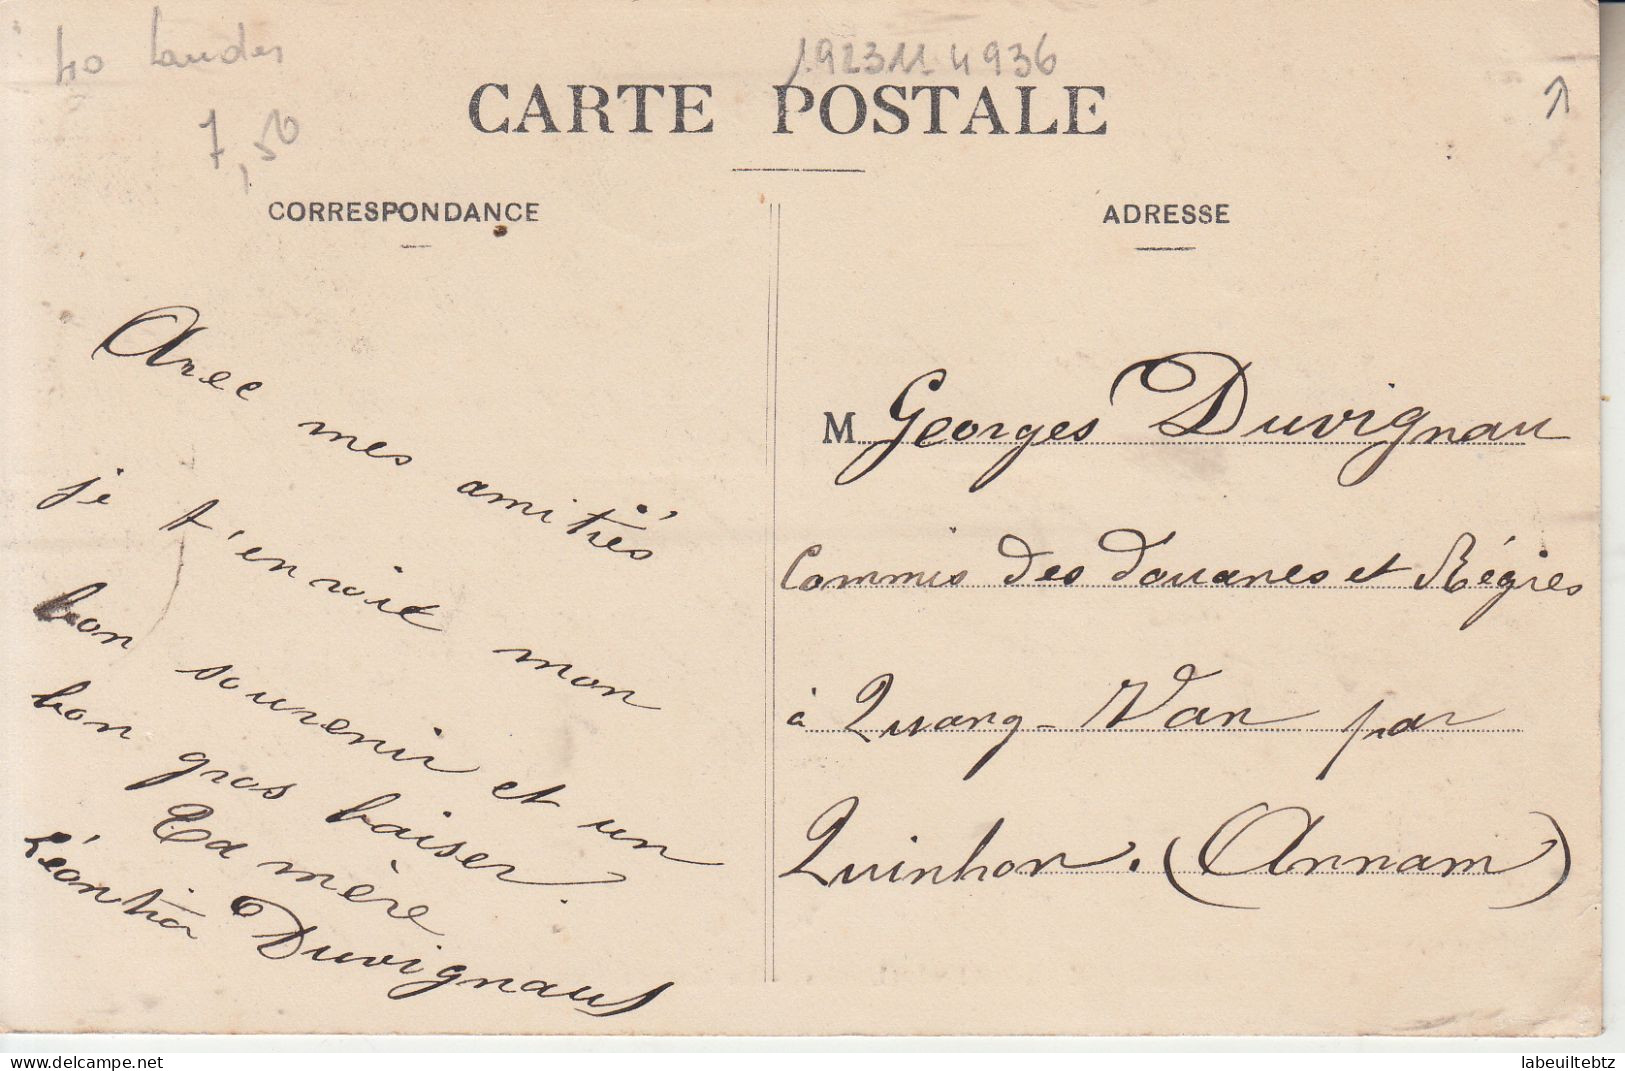 40 Landes
192311 4936
7,50
CARTE POSTALE
CORRESPONDANCE
ADRESSE
Avec mes amitiés
je t'envoie mon
bon souvenir et un
bon gros baiser.
Ta mère
Léontia Duvignau
M Georges Duvignau
Commis des douanes et Régies
à Quang-Van par
Quinhon. (Annam)
Delcampe.net
labeuiltebtz